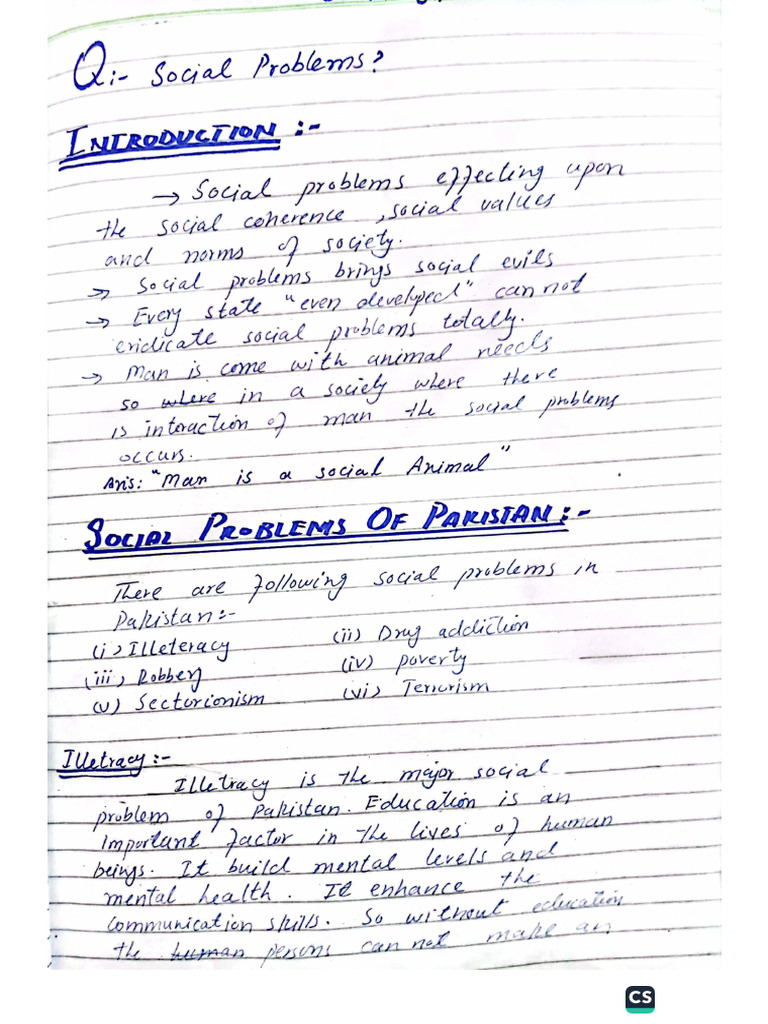 Q:- Social Problems?
INTRODUCTION :-
→ Social problems effecting upon
the social coherence , social values
and norms of society.
→ Social problems brings social evils
→ Every state "even developed" can not
eridicate social problems totally.
→ Man is come with animal needs
so where in a society where there
is interaction of man the social problems
occurs.
Aris: "Man is a social Animal"
SOCIAL PROBLEMS OF PAKISTAN :-
There are following social problems in
Pakistan:-
(i) Illeteracy (ii) Drug addiction
(iii) Robbery (iv) poverty
(v) Sectorionism (vi) Terrorism
Illetracy :-
Illetracy is the major social
problem of Pakistan. Education is an
important factor in the lives of human
beings. It build mental levels and
mental health. It enhance the
communication skills. So without education
the human persons can not make an
CS